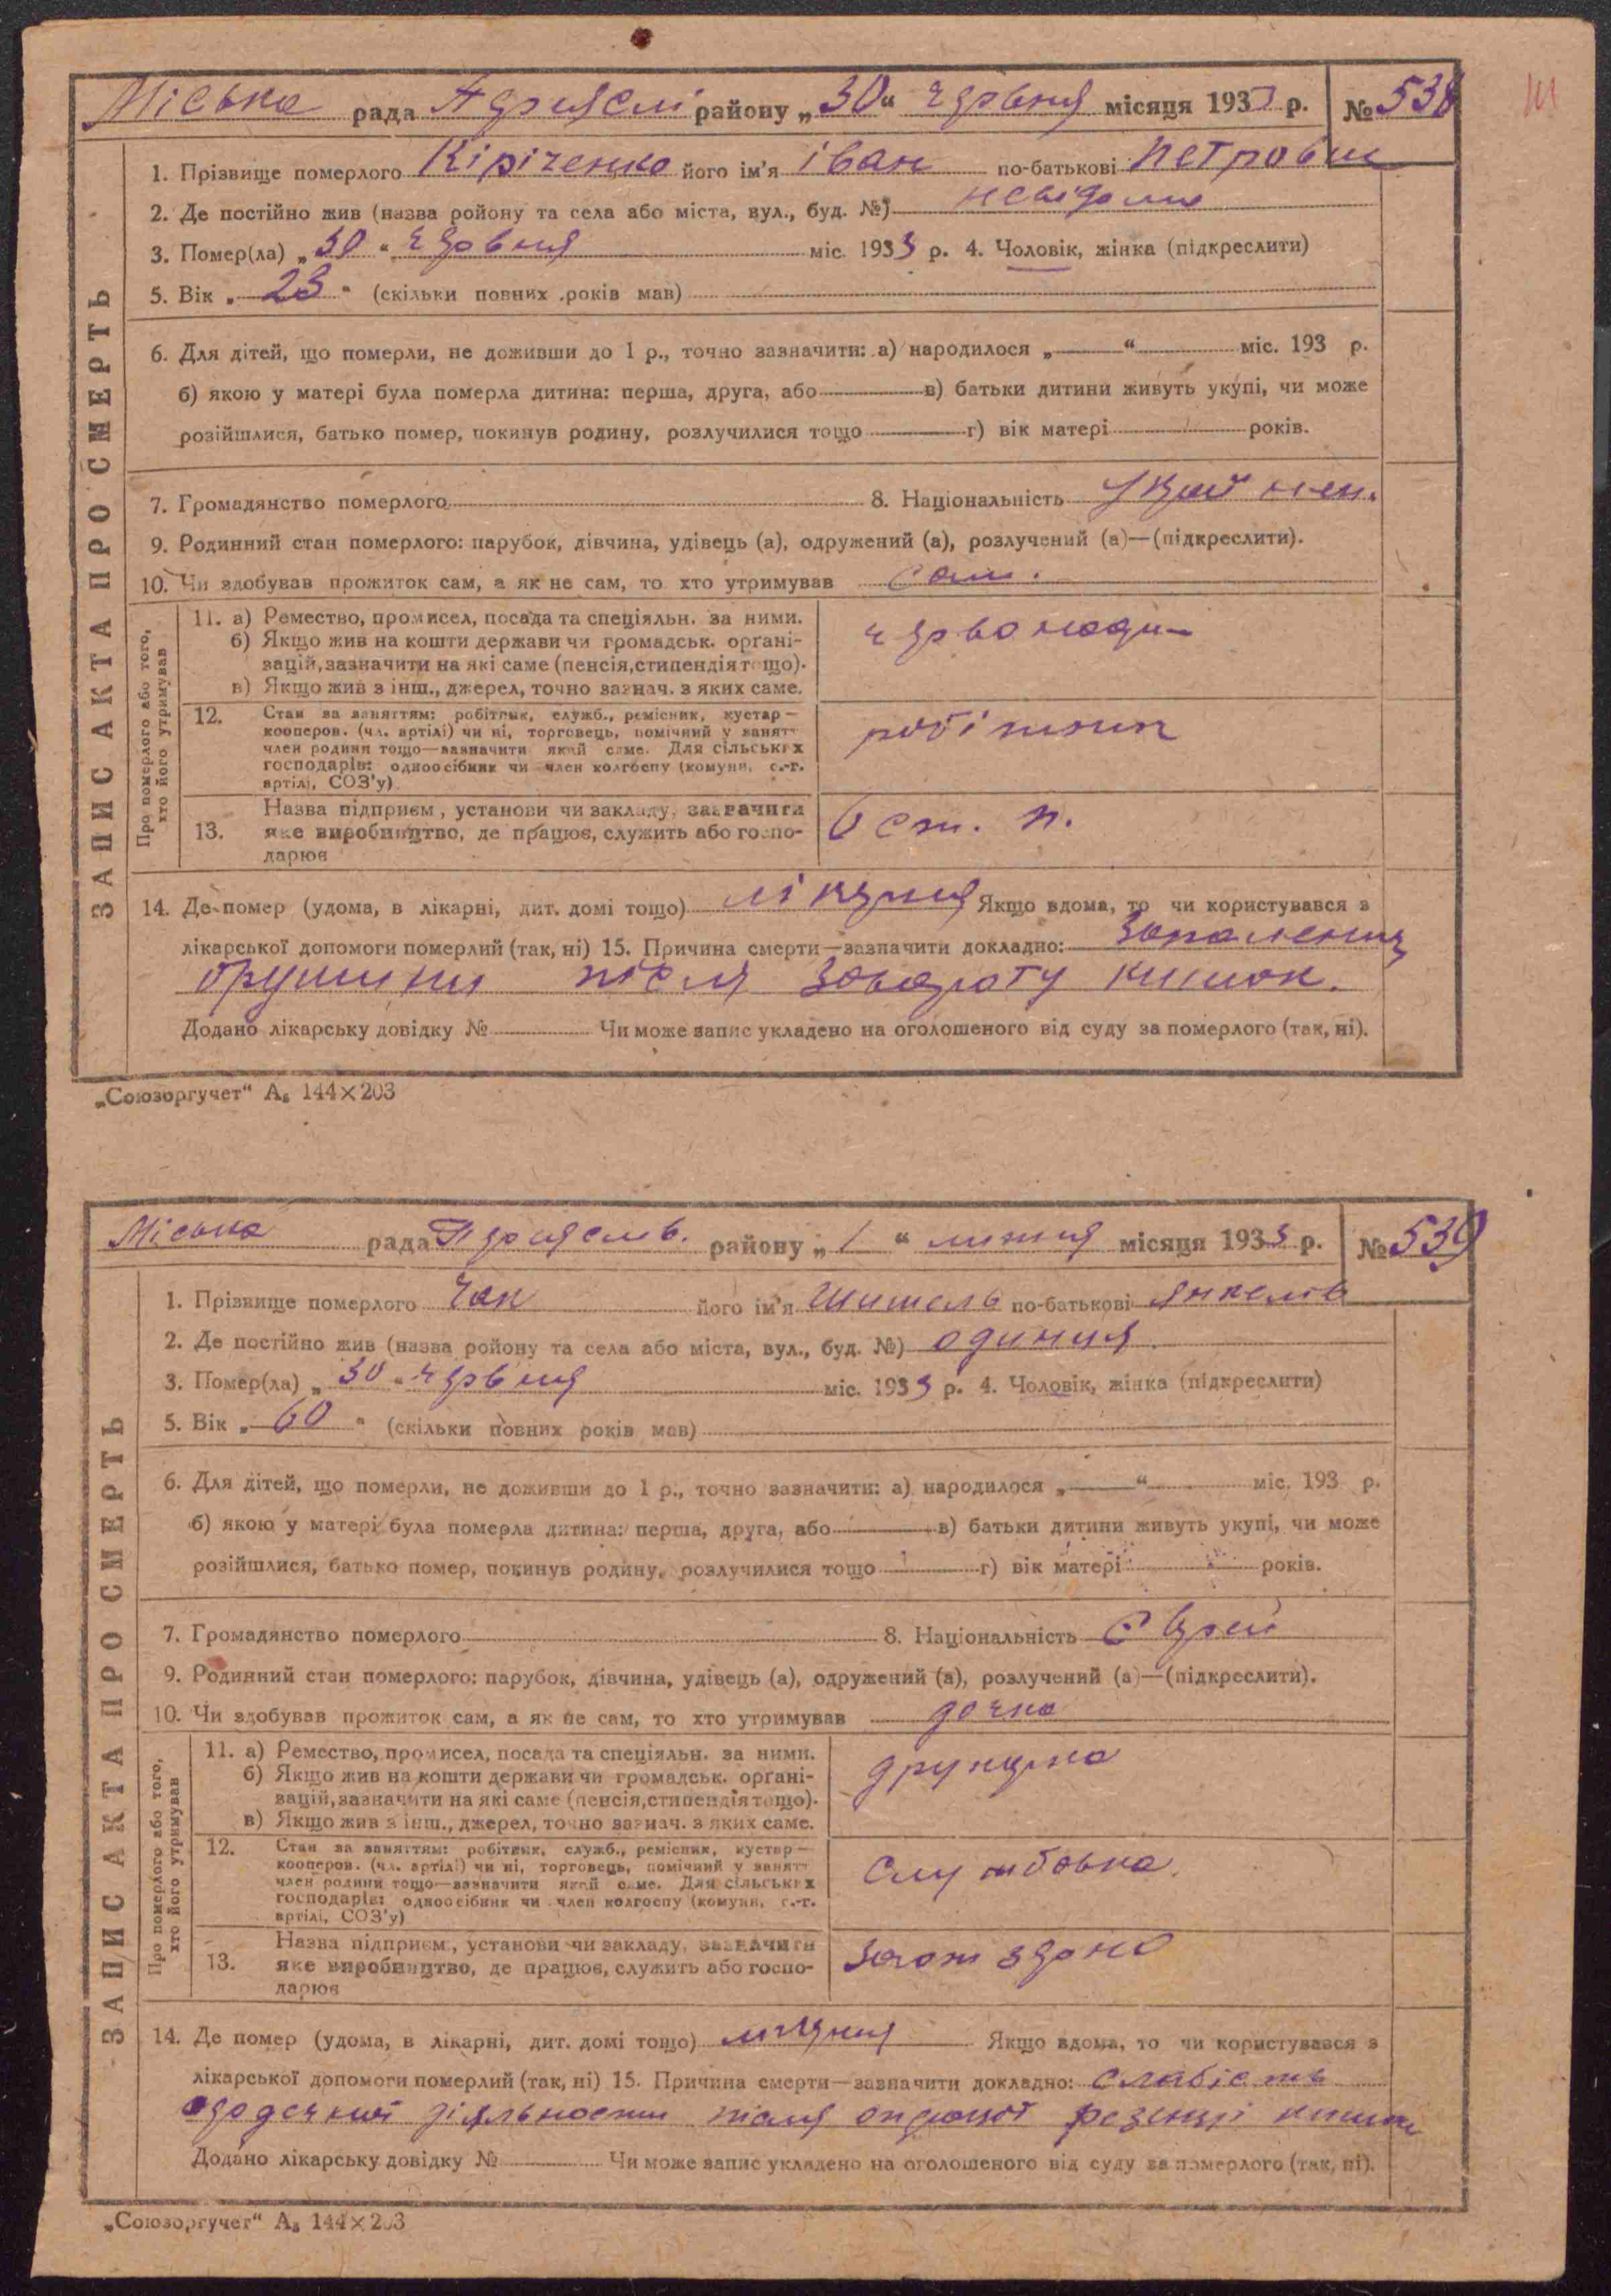 Міська рада Переяслі району „30“ червня місяця 1933 р. № 538
ЗАПИС АКТА ПРО СМЕРТЬ
1. Прізвище померлого Кіріченко його ім'я Іван по-батькові Петрович
2. Де постійно жив (назва ройону та села або міста, вул., буд. №) невідомо
3. Помер(ла) „30“ червня міс. 1933 р. 4. Чоловік, жінка (підкреслити)
5. Вік „23“ (скільки повних років мав)
6. Для дітей, що померли, не доживши до 1 р., точно зазначити: а) народилося „ “ міс. 193 р.
б) якою у матері була померла дитина: перша, друга, або в) батьки дитини живуть укупі, чи може
розійшлися, батько помер, покинув родину, розлучилися тощо г) вік матері років.
7. Громадянство померлого 8. Національність
9. Родинний стан померлого: парубок, дівчина, удівець (а), одружений (а), розлучений (а)—(підкреслити).
10. Чи здобував прожиток сам, а як не сам, то хто утримував сам.
Про померлого або того, хто його утримував
11. а) Ремество, промисел, посада та спеціяльн. за ними.
б) Якщо жив на кошти держави чи громадськ. орґані-
зацій, зазначити на які саме (пенсія, стипендія тощо).
в) Якщо жив з інш., джерел, точно зазнач. з яких саме.
12. Стан за заняттям: робітник, служб., ремісник, кустар—
кооперов. (чл. артілі) чи ні, торговець, помічний у занятт
член родини тощо—зазначити який саме. Для сільських
господарів: одноосібник чи член колгоспу (комуни, с.-г.
артілі, СОЗ'у)
робітник
13. Назва підприєм, установи чи закладу, зазначити
яке виробництво, де працює, служить або госпо-
дарює
14. Де помер (удома, в лікарні, дит. домі тощо) лікерня Якщо вдома, то чи користувався з
лікарської допомоги померлий (так, ні) 15. Причина смерти—зазначити докладно: Запалення
брушини після завароту кишок.
Додано лікарську довідку № Чи може запис укладено на оголошеного від суду за померлого (так, ні).
„Союзоргучет“ А₅ 144×203
Міська рада Переяслів. району „1“ липня місяця 1933 р. № 539
ЗАПИС АКТА ПРО СМЕРТЬ
1. Прізвище померлого Чак його ім'я Шимель по-батькові Янкелів
2. Де постійно жив (назва ройону та села або міста, вул., буд. №)
3. Помер(ла) „30“ червня міс. 1933 р. 4. Чоловік, жінка (підкреслити)
5. Вік „60“ (скільки повних років мав)
6. Для дітей, що померли, не доживши до 1 р., точно зазначити: а) народилося „ “ міс. 193 р.
б) якою у матері була померла дитина: перша, друга, або в) батьки дитини живуть укупі, чи може
розійшлися, батько помер, покинув родину, розлучилися тощо г) вік матері років.
7. Громадянство померлого 8. Національність Єврей
9. Родинний стан померлого: парубок, дівчина, удівець (а), одружений (а), розлучений (а)—(підкреслити).
10. Чи здобував прожиток сам, а як не сам, то хто утримував дочка
Про померлого або того, хто його утримував
11. а) Ремество, промисел, посада та спеціяльн. за ними.
б) Якщо жив на кошти держави чи громадськ. орґані-
зацій, зазначити на які саме (пенсія, стипендія тощо).
в) Якщо жив з інш., джерел, точно зазнач. з яких саме.
12. Стан за заняттям: робітник, служб., ремісник, кустар—
кооперов. (чл. артілі) чи ні, торговець, помічний у занятт
член родини тощо—зазначити який саме. Для сільських
господарів: одноосібник чи член колгоспу (комуни, с.-г.
артілі, СОЗ'у)
Службовка.
13. Назва підприєм, установи чи закладу, зазначити
яке виробництво, де працює, служить або госпо-
дарює
Заготзерно
14. Де помер (удома, в лікарні, дит. домі тощо) Якщо вдома, то чи користувався з
лікарської допомоги померлий (так, ні) 15. Причина смерти—зазначити докладно: Слабість
сердечної діяльности після операції резекції кишки
Додано лікарську довідку № Чи може запис укладено на оголошеного від суду за померлого (так, ні).
„Союзоргучет“ А₅ 144×203